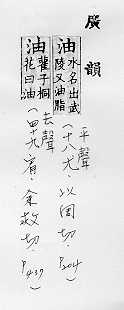 廣韻
油 水名出武
陵又油脂
(平聲
十八尤 以周切 P204)
油 子桐
花曰油
(去聲
四十九宥 余救切 P437)